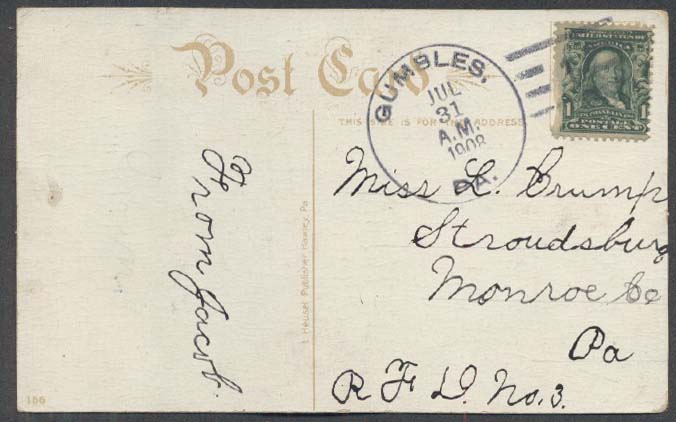 Post Card
GUMBLES,
JUL
31
A.M.
1908
PA.
UNITED STATES OF
AMERICA
FRANKLIN
POSTAGE
1 ONE CENT 1
THIS SIDE IS FOR THE ADDRESS
From Jacob.
Miss L. Crump
Stroudsburg
Monroe Co
Pa
R F D. No. 3.
Heusel Publisher Hawley, Pa
166